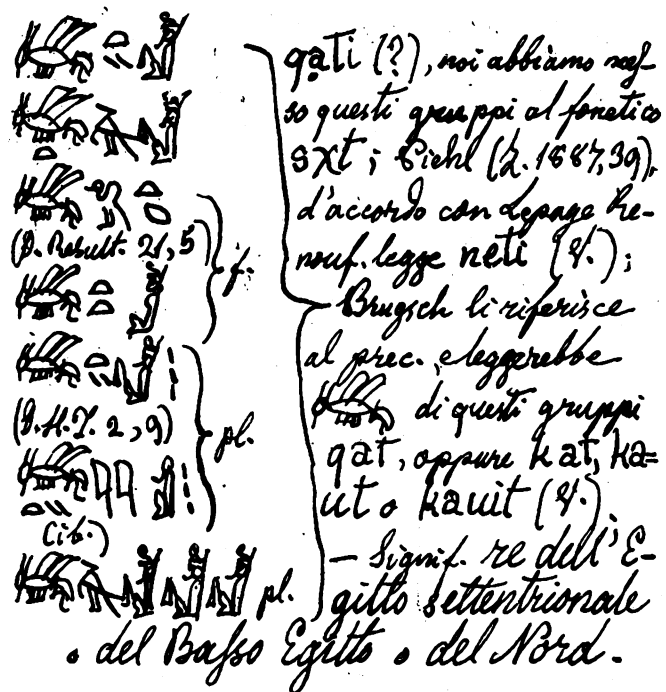 qati (?), noi abbiamo mes-
so questi gruppi al fonetico
sχt; Piehl (Z. 1887, 39),
d'accordo con Lepage Re-
(D. Result. 21, 5) f. nouf. legge neti (V.);
Brugsch li riferisce
al prec., e leggerebbe
(D. H. I. 2, 9) pl. di questi gruppi
qat, oppure kat, ka=
ut o kauit (V.)
Cib.) — Signif. re dell'E-
pl. gitto settentrionale
o del Basso Egitto o del Nord.